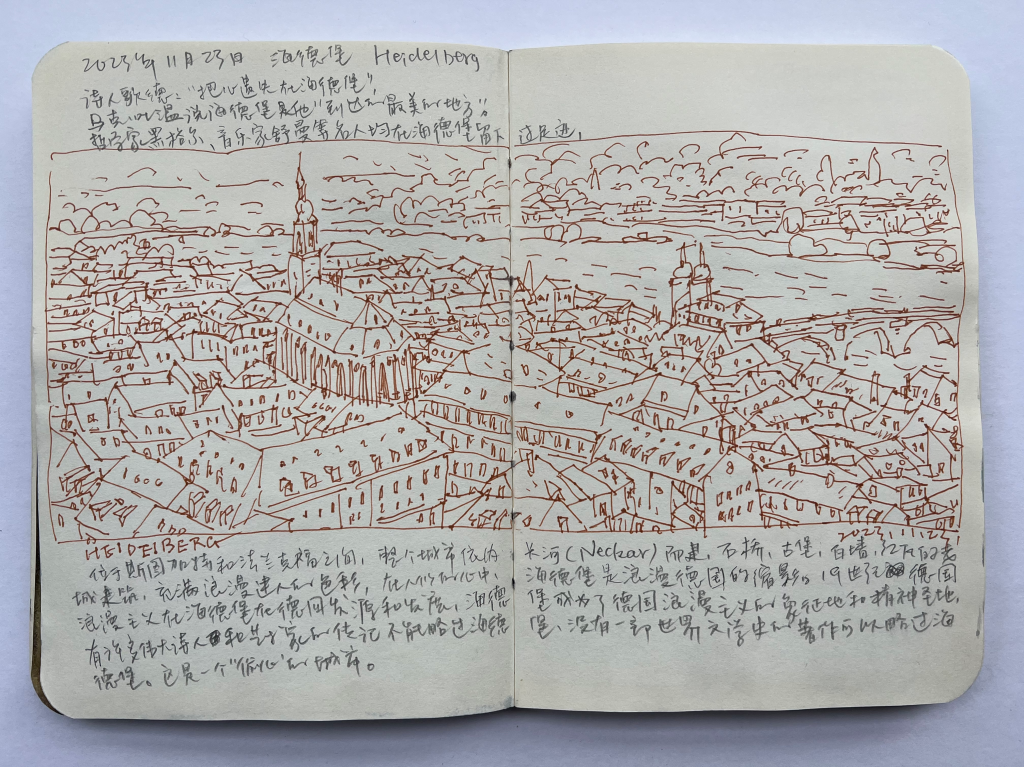 2023年11月23日 海德堡 Heidelberg
诗人歌德:"把心遗失在海德堡",
马克·吐温说海德堡是他"到过的最美的地方",
哲学家黑格尔、音乐家舒曼等名人均在海德堡留下过足迹,
HEIDEIBERG
2023.11.23
位于斯图加特和法兰克福之间,整个城市依内卡河(Neckar)而建,石桥、古堡、白墙、红瓦的老
城建筑,充满浪漫迷人的色彩,在人们的心中,海德堡是浪漫德国的缩影。19世纪德国
浪漫主义在海德堡在德国发源和发展,海德堡成为了德国浪漫主义的象征地和精神圣地,
有许多伟大诗人和艺术家的传记不能略过海德堡,没有一部世界文学史的著作可以略过海
德堡。它是一个"偷心"的城市。